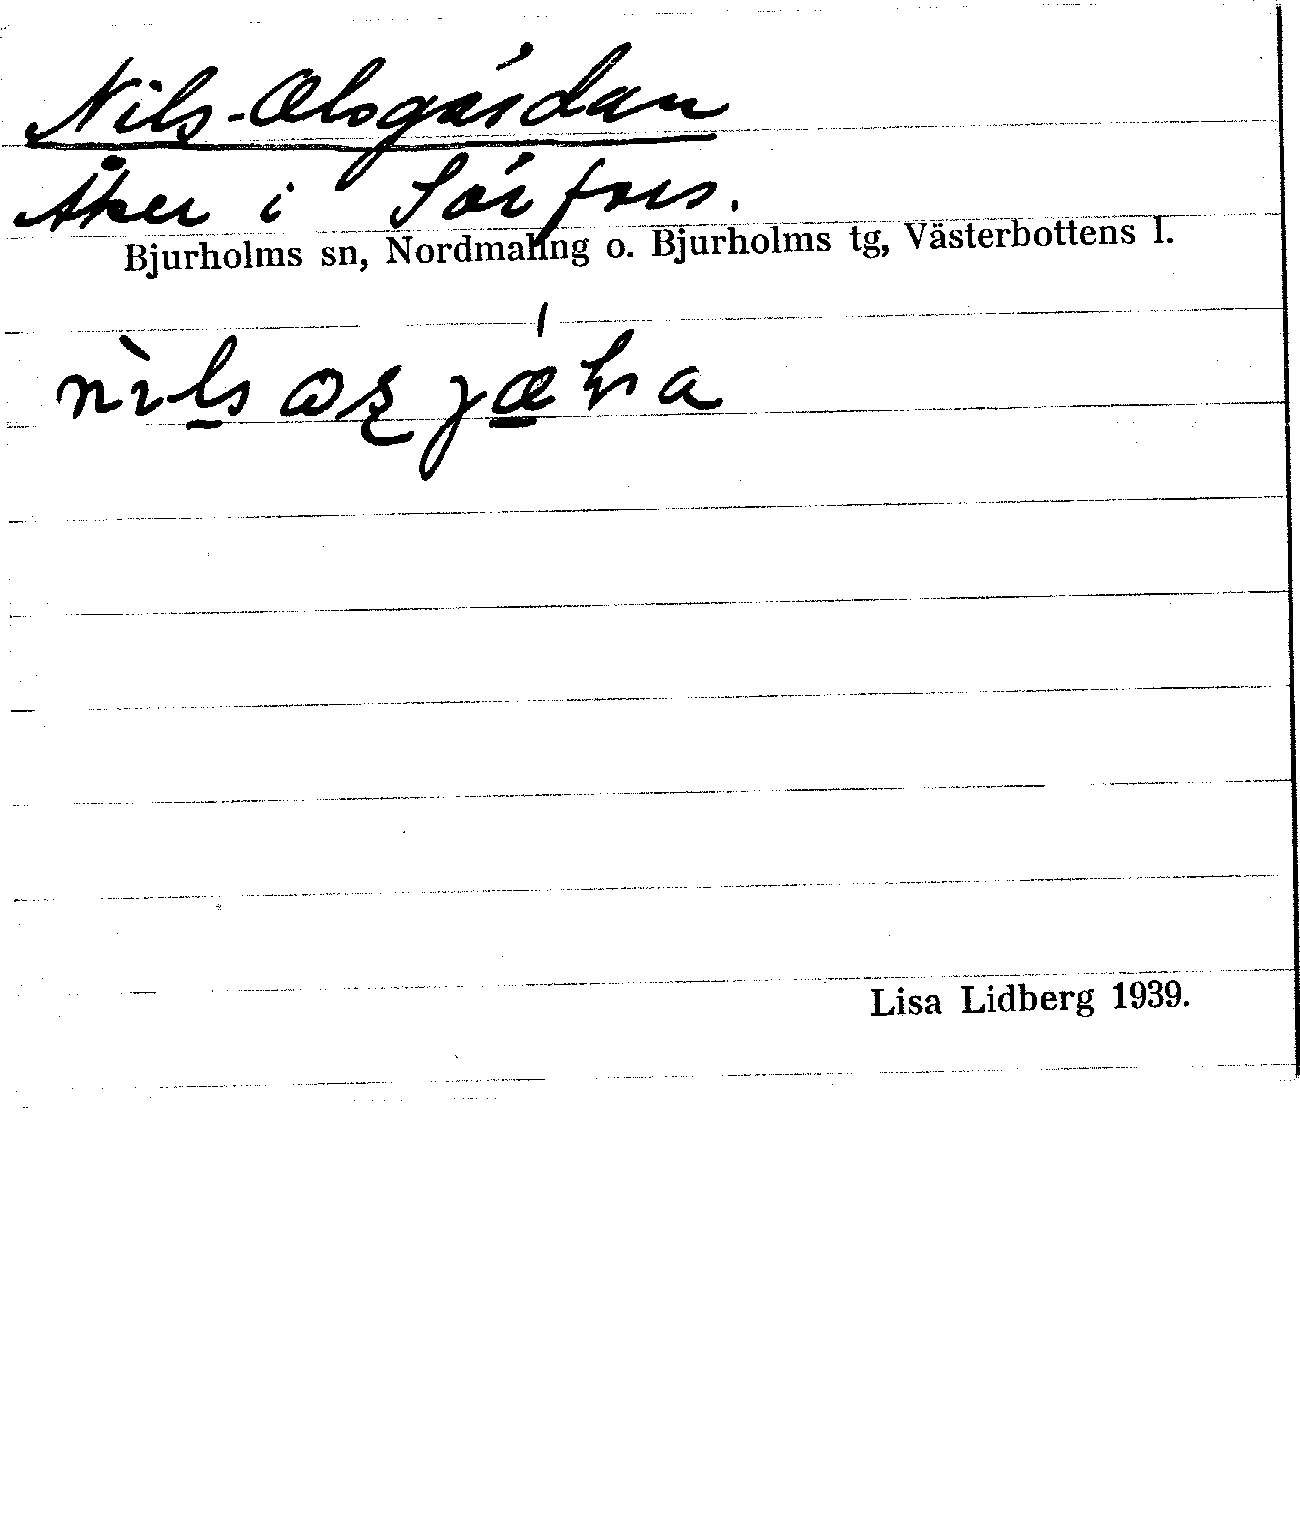 Nils-Olsgärdan
Åker i Sörfors.
Bjurholms sn, Nordmaling o. Bjurholms tg, Västerbottens l.
Lisa Lidberg 1939.